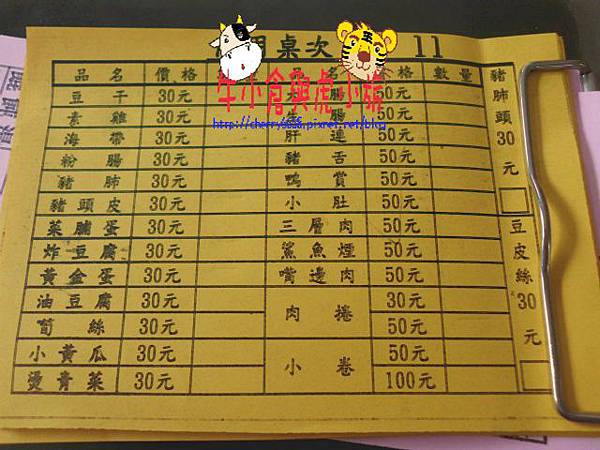 桌次 11
品名 價格 名 價格 數量
牛小倉與虎小班
http://cherry6636.pixnet.net/blog
豆干 30元 腸 50元
素雞 30元 腸 50元
海帶 30元 肝連 50元
粉腸 30元 豬舌 50元
豬肺 30元 鴨賞 50元
豬頭皮 30元 小肚 50元
菜脯蛋 30元 三層肉 50元
炸豆腐 30元 鯊魚煙 50元
黃金蛋 30元 嘴邊肉 50元
油豆腐 30元 肉捲 30元
筍絲 30元 50元
小黃瓜 30元 小卷 50元
燙青菜 30元 100元
豬肺頭30元
豆皮絲30元